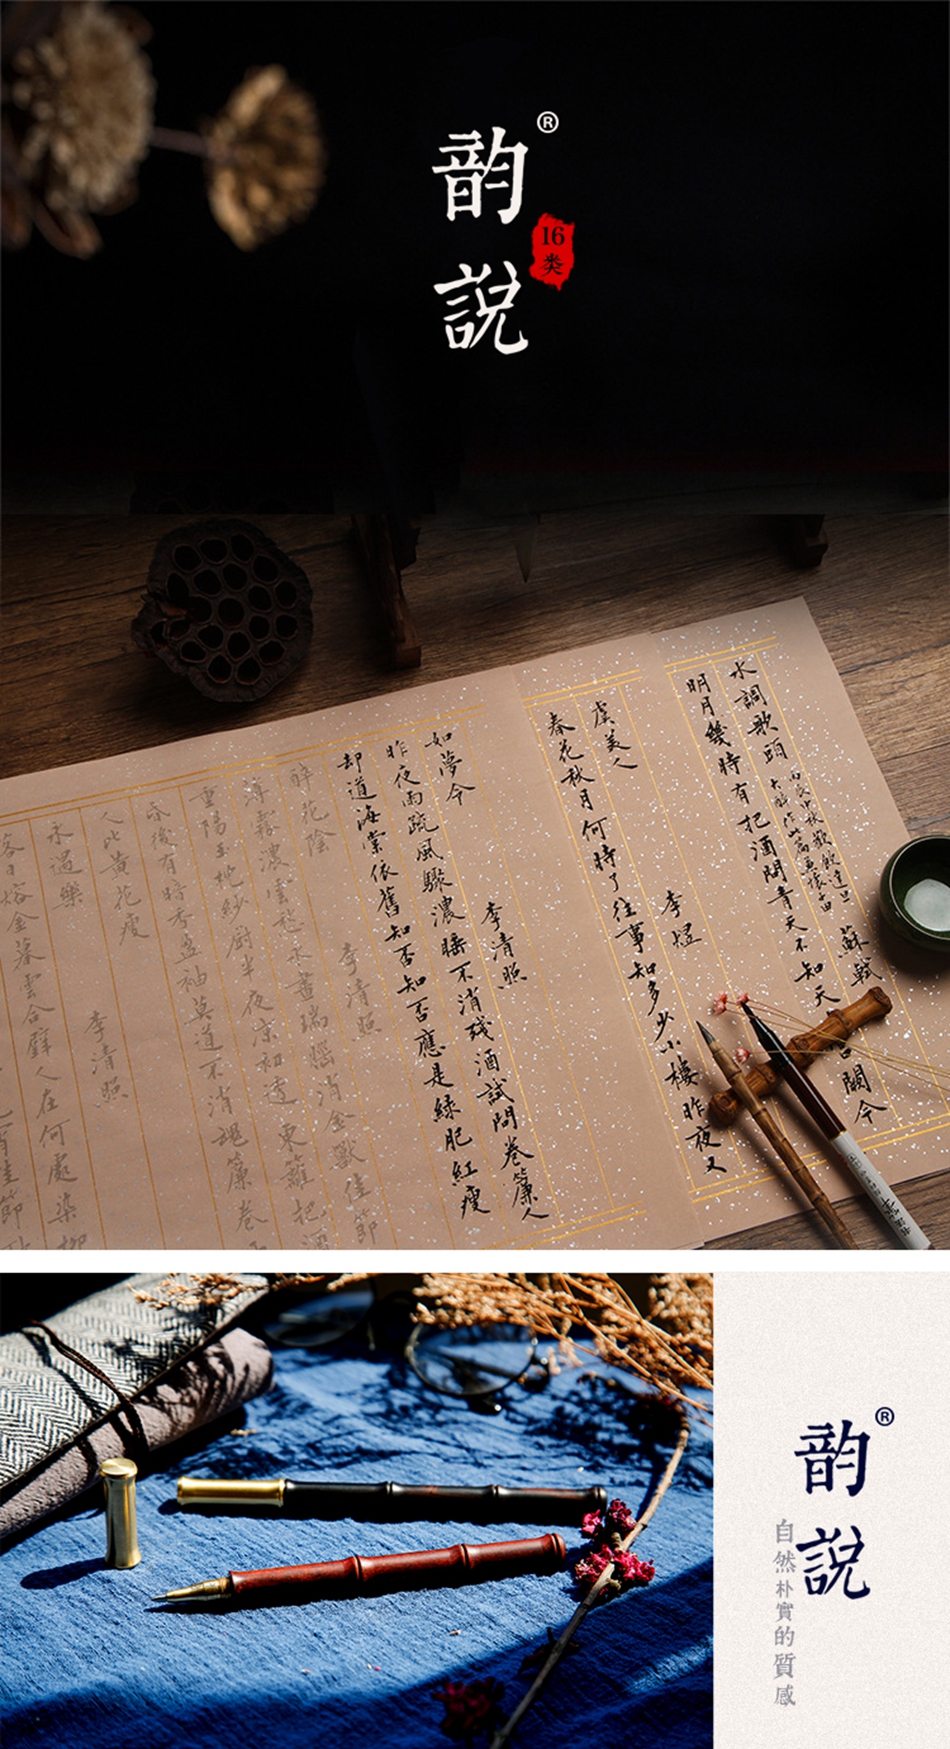 韵說®
16类
水調歌頭
丙辰中秋歡飲達旦
大醉作此篇兼懷子由
蘇軾
明月幾時有把酒問青天不知天
闕今
虞美人
李煜
春花秋月何時了往事知多少小樓昨夜又
如夢令
李清照
昨夜雨疏風驟濃睡不消殘酒試問卷簾人
却道海棠依舊知否知否應是綠肥紅瘦
醉花陰
李清照
薄霧濃雲愁永晝瑞腦消金獸佳節
重陽玉枕紗厨半夜凉初透東籬把酒
昏後有暗香盈袖莫道不消魂簾卷
人比黃花瘦
李清照
永遇樂
落日熔金暮雲合璧人在何處染柳
韵說®
自然朴實的質感